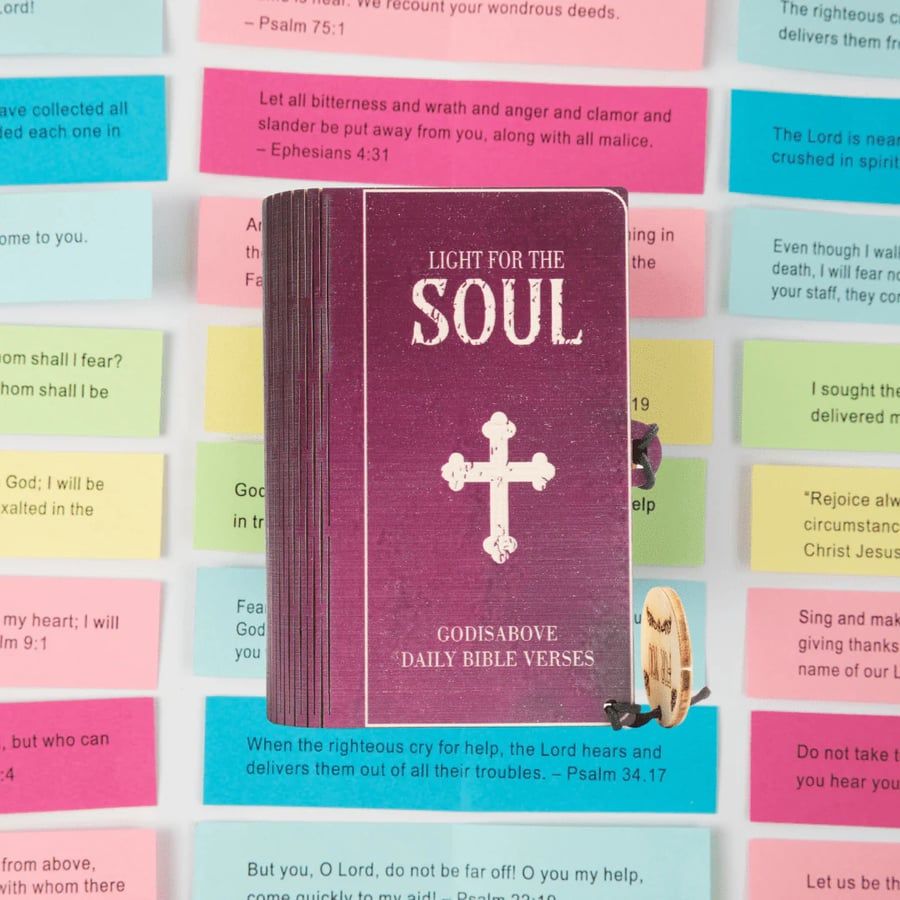 Lord!
We recount your wondrous deeds.
– Psalm 75:1
The righteous
delivers them
have collected all
each one in
Let all bitterness and wrath and anger and clamor and
slander be put away from you, along with all malice.
– Ephesians 4:31
The Lord is near
crushed in spirit
come to you.
in
the
Even though I
death, I will fear
your staff, they
whom shall I fear?
whom shall I be
19
I sought the
delivered
God; I will be
exalted in the
God
in
help
"Rejoice
Christ Jesus
my heart; I will
9:1
God
you
Sing and
giving thanks
name of our
LIGHT FOR THE
SOUL
GODISABOVE
DAILY BIBLE VERSES
, but who can
:4
When the righteous cry for help, the Lord hears and
delivers them out of all their troubles. – Psalm 34.17
Do not take
you hear
from above,
with whom there
But you, O Lord, do not be far off! O you my help,
come quickly to my aid! – Psalm 22:19
Let us be